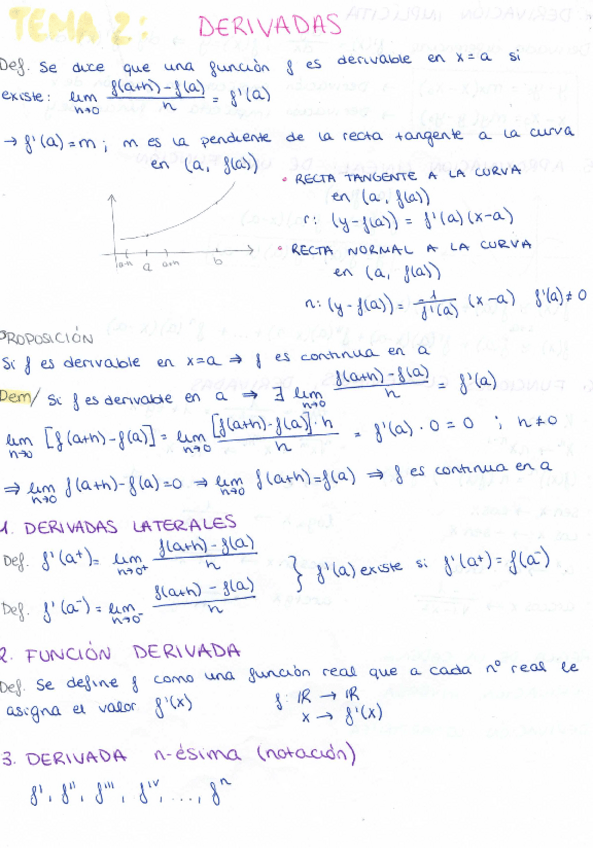 TEMA 2: DERIVADAS
Def. Se dice que una función f es derivable en x=a si
existe: lim h→0 f(a+h)-f(a)/h = f'(a)
→ f'(a)=m ; m es la pendiente de la recta tangente a la curva
en (a, f(a))
• RECTA TANGENTE A LA CURVA
en (a, f(a))
r: (y-f(a)) = f'(a)(x-a)
• RECTA NORMAL A LA CURVA
en (a, f(a))
n: (y-f(a)) = 1/f'(a) (x-a) f'(a)≠0
a+h a a+h b
PROPOSICIÓN
Si f es derivable en x=a ⇒ f es continua en a
Dem/ Si f es derivable en a ⇒ ∃ lim h→0 f(a+h)-f(a)/h = f'(a)
lim h→0 [f(a+h)-f(a)] = lim h→0 [f(a+h)-f(a)]·h/h = f'(a)·0 = 0 ; h≠0
⇒ lim h→0 f(a+h)-f(a)=0 ⇒ lim h→0 f(a+h)=f(a) ⇒ f es continua en a
1. DERIVADAS LATERALES
Def. f'(a⁺)= lim h→0⁺ f(a+h)-f(a)/h
} f'(a) existe si f'(a⁺)=f(a⁻)
Def. f'(a⁻)= lim h→0⁻ f(a+h)-f(a)/h
2. FUNCIÓN DERIVADA
Def. Se define f como una función real que a cada nº real le
asigna el valor f'(x) f: ℝ → ℝ
x → f'(x)
3. DERIVADA n-ésima (notación)
f', f'', f''', f^IV, ..., f^n